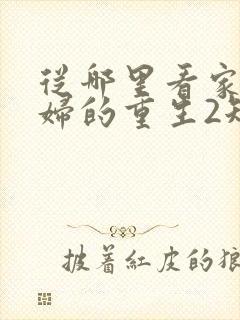 從哪里看家
婦的重生2短
披着紅皮的狼